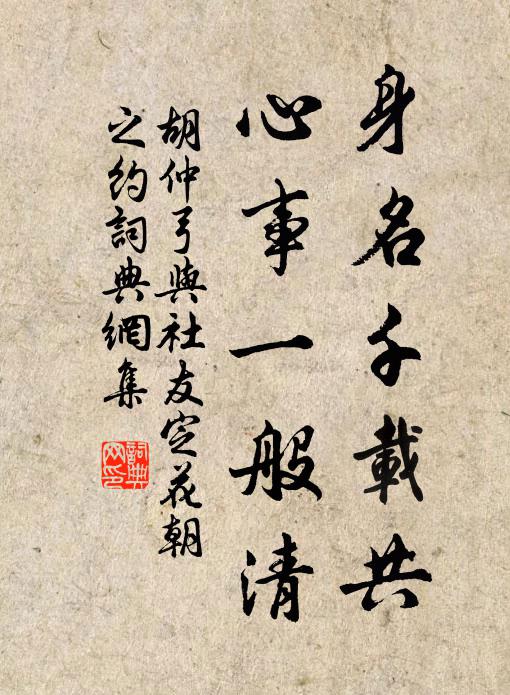 身名千載共
心事一般清
胡仲弓與社友定花朝
之約詞典網集
詞典網印